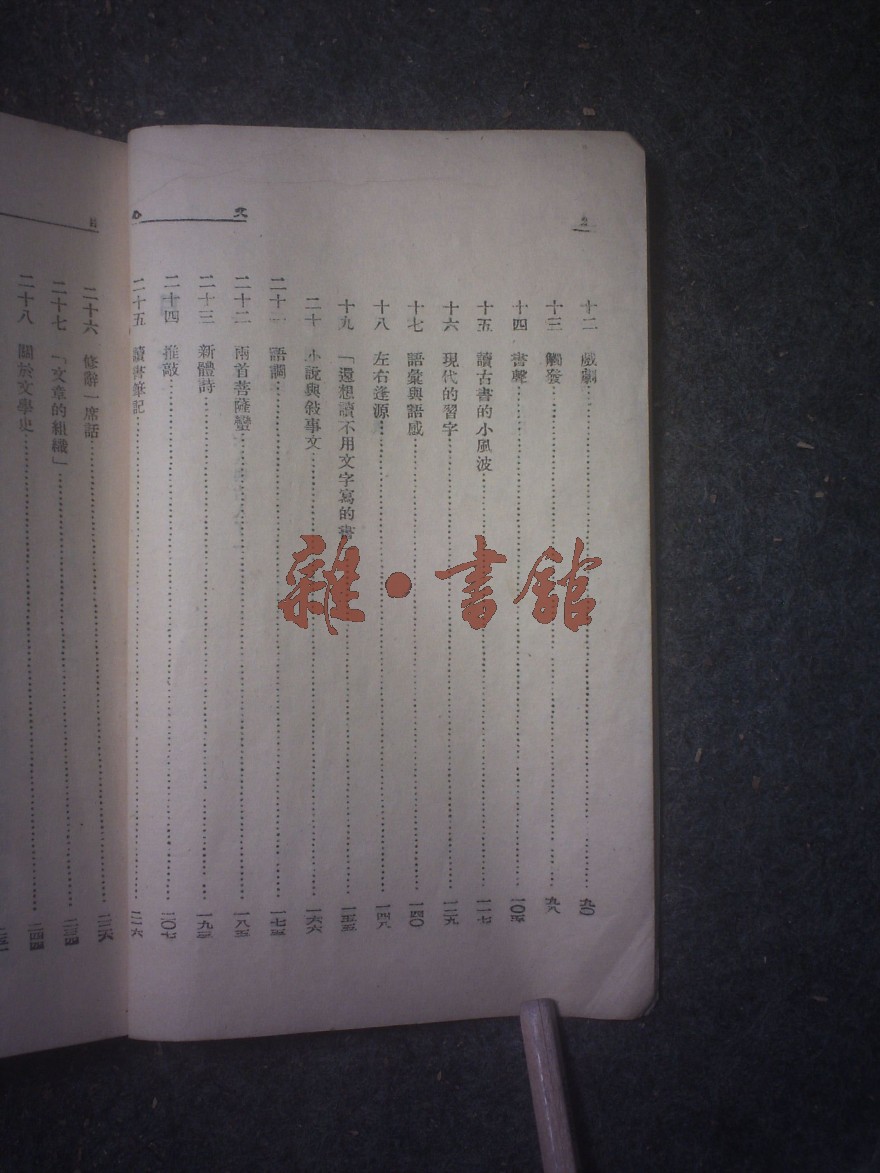 文心
十二 戲劇 九〇
十三 觸發 九八
十四 書聲 一〇五
十五 讀古書的小風波 一一七
十六 現代的習字 一二九
十七 語彙與語感 一四〇
十八 左右逢源 一四八
十九 「還想讀不用文字寫的書 一五五
二十 小說與敍事文 一六六
二十一 語調 一七五
二十二 兩首菩薩蠻 一八五
二十三 新體詩
二十四 推敲 二〇七
二十五 讀書筆記 二一六
二十六 修辭一席話
二十七 「文章的組織」
二十八 關於文學史
雜·書館